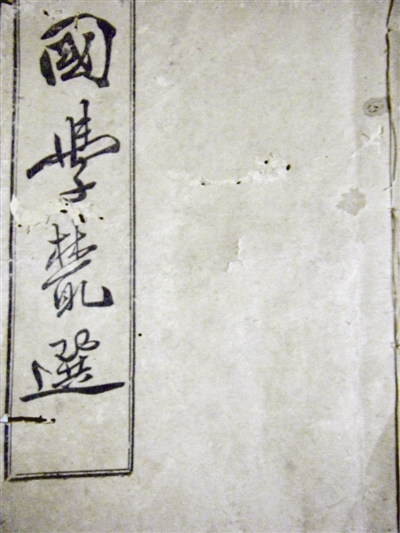 國學叢選